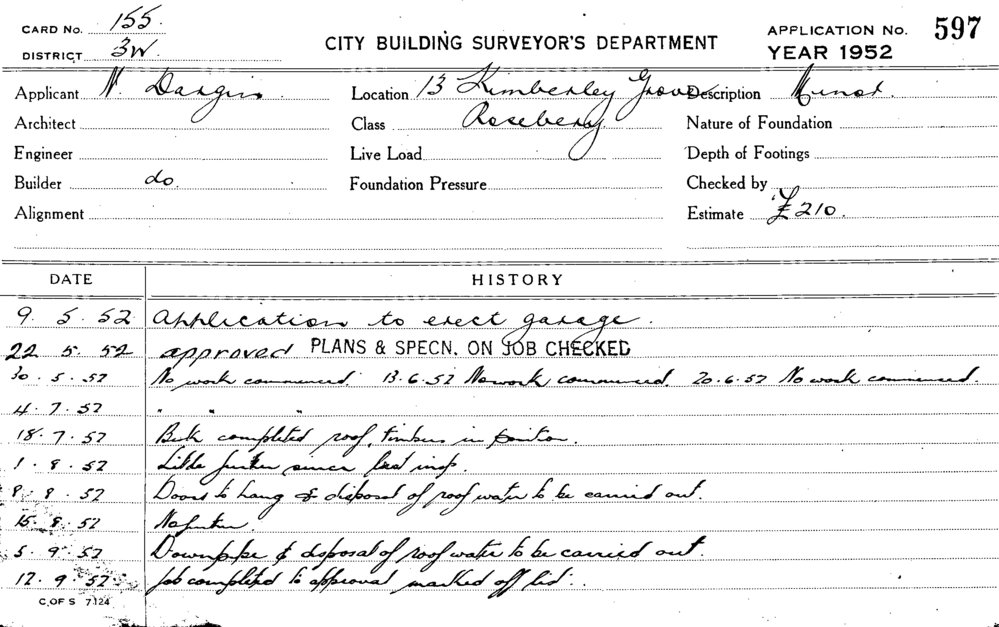 CARD No. 155. CITY BUILDING SURVEYOR'S DEPARTMENT APPLICATION No. 597
DISTRICT 3W. YEAR 1952
Applicant N. Dargin Location 13 Kimberley Grove Description Minor.
Architect Class Rosebery Nature of Foundation
Engineer Live Load Depth of Footings
Builder do. Foundation Pressure Checked by
Alignment Estimate £210.
DATE HISTORY
9. 5. 52 Application to erect garage.
22 5. 52 approved PLANS & SPECN. ON JOB CHECKED
30. 5. 52 No work commenced. 13.6.52 No work commenced. 20.6.52 No work commenced.
4. 7. 52 " " "
18. 7. 52 completed roof, timbers in position.
1. 8. 52 Little further since last insp.
8. 8. 52 Doors to hang & disposal of roof water to be carried out.
15. 8. 52 No further.
5. 9. 52 Downpipe & disposal of roof water to be carried out.
12. 9. 52 Job completed to approval marked off
C. OF S 7124